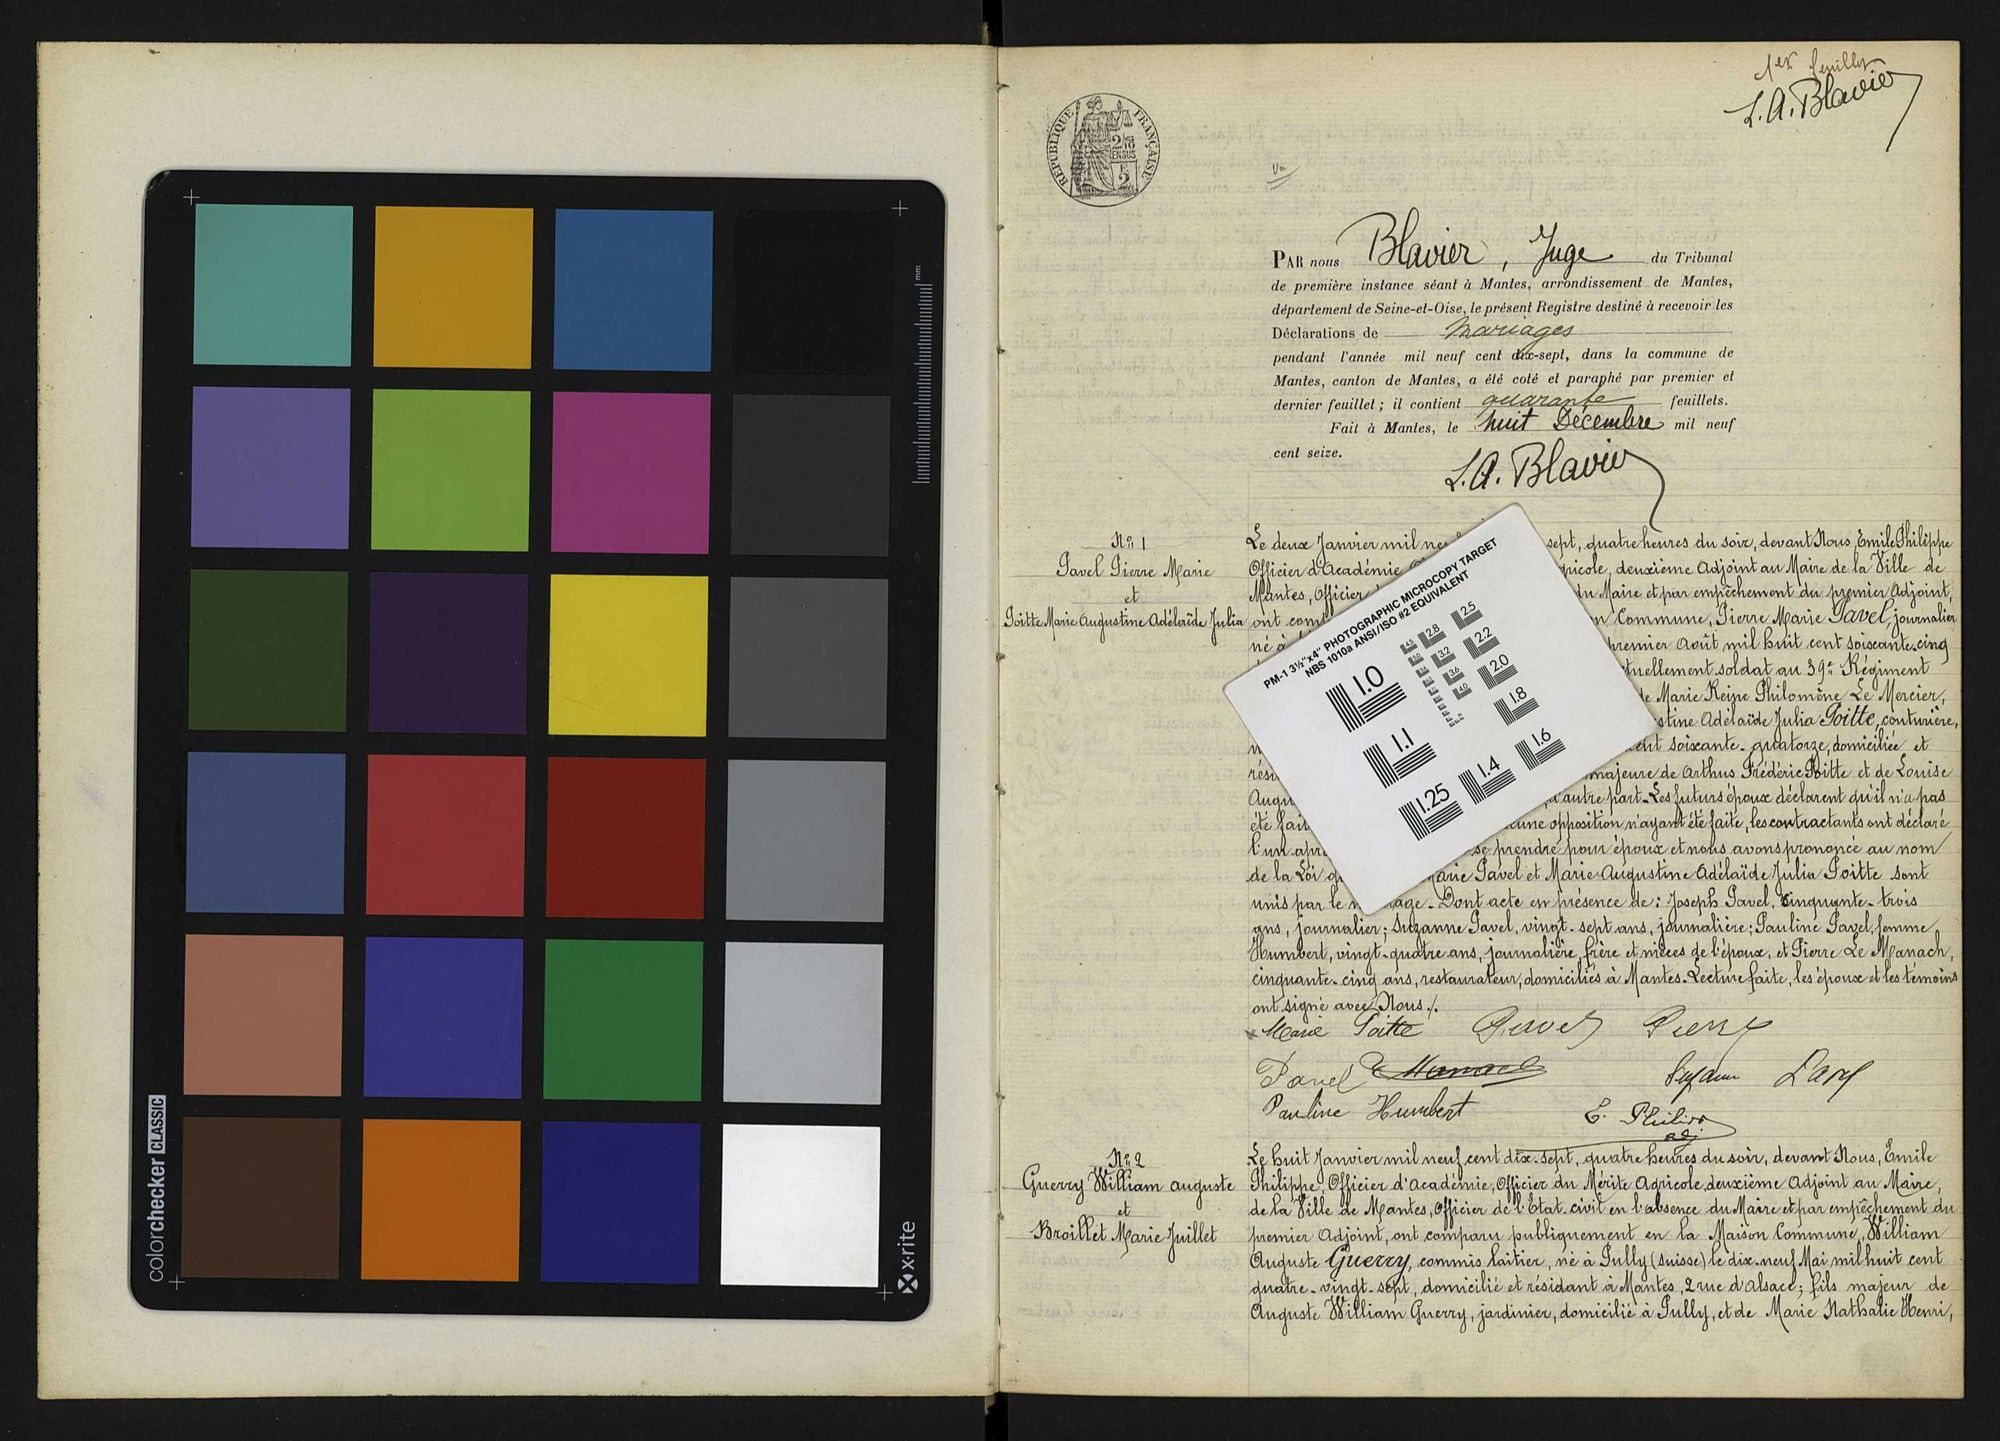 colorchecker CLASSIC
x-rite
mm
1er feuillet
L. A. Blavier
RÉPUBLIQUE FRANÇAISE
Vu
PAR nous Blavier, Juge du Tribunal
de première instance séant à Mantes, arrondissement de Mantes,
département de Seine-et-Oise, le présent Registre destiné à recevoir les
Déclarations de Mariages
pendant l'année mil neuf cent dix-sept, dans la commune de
Mantes, canton de Mantes, a été coté et paraphé par premier et
dernier feuillet ; il contient quarante feuillets.
Fait à Mantes, le huit Décembre mil neuf
cent seize.
L. A. Blavier
PM-1 3½"x4" PHOTOGRAPHIC MICROCOPY TARGET
NBS 1010a ANSI/ISO #2 EQUIVALENT
1.0
1.1
1.25
1.4
1.6
1.8
2.0
2.2
2.5
2.8
3.2
3.6
4.0
4.5
N° 1
Pavel Pierre Marie
et
Poitte Marie Augustine Adélaïde Julia
Le deux Janvier mil neu sept, quatre heures du soir, devant Nous, Emile Philippe
Officier d'Académie ricole, deuxième Adjoint au Maire de la Ville de
Mantes, Officier du Maire et par empêchement du premier Adjoint,
ont com Commune, Pierre Marie Pavel, journalier
né à premier Août mil huit cent soixante-cinq
tuellement soldat au 39e Régiment
de Marie Reine Philomène Le Mercier,
stine Adélaïde Julia Poitte, couturière,
cent soixante-quatorze, domiciliée et
rési majeure de Arthus Frédéric Poitte et de Louise
Augu d'autre part. Les futurs époux déclarent qu'il n'a pas
été fait cune opposition n'ayant été faite, les contractants ont déclaré
l'un apr se prendre pour époux et nous avons prononcé au nom
de la Loi q arie Pavel et Marie Augustine Adélaïde Julia Poitte sont
unis par le m age. Dont acte en présence de : Joseph Pavel, cinquante-trois
ans, journalier ; Suzanne Pavel, vingt-sept ans, journalière ; Pauline Pavel, femme
Humbert, vingt-quatre ans, journalière, frère et nièces de l'époux, et Pierre Le Manach,
cinquante-cinq ans, restaurateur, domiciliés à Mantes. Lecture faite, les époux et les témoins
ont signé avec Nous ./.
Marie Poitte Pavel Pierre
Pavel Le Manach Suzanne Pavel
Pauline Humbert E. Philippe
adj.
N° 2
Guerry William Auguste
et
Broillet Marie Juillet
Le huit Janvier mil neuf cent dix-sept, quatre heures du soir, devant Nous, Emile
Philippe, Officier d'Académie, Officier du Mérite Agricole, deuxième Adjoint au Maire,
de la Ville de Mantes, Officier de l'Etat-civil en l'absence du Maire et par empêchement du
premier Adjoint, ont comparu publiquement en la Maison Commune, William
Auguste Guerry, commis laitier, né à Pully (Suisse) le dix-neuf Mai mil huit cent
quatre-vingt-sept, domicilié et résidant à Mantes, 2 rue d'Alsace ; fils majeur de
Auguste William Guerry, jardinier, domicilié à Pully, et de Marie Nathalie Henri,